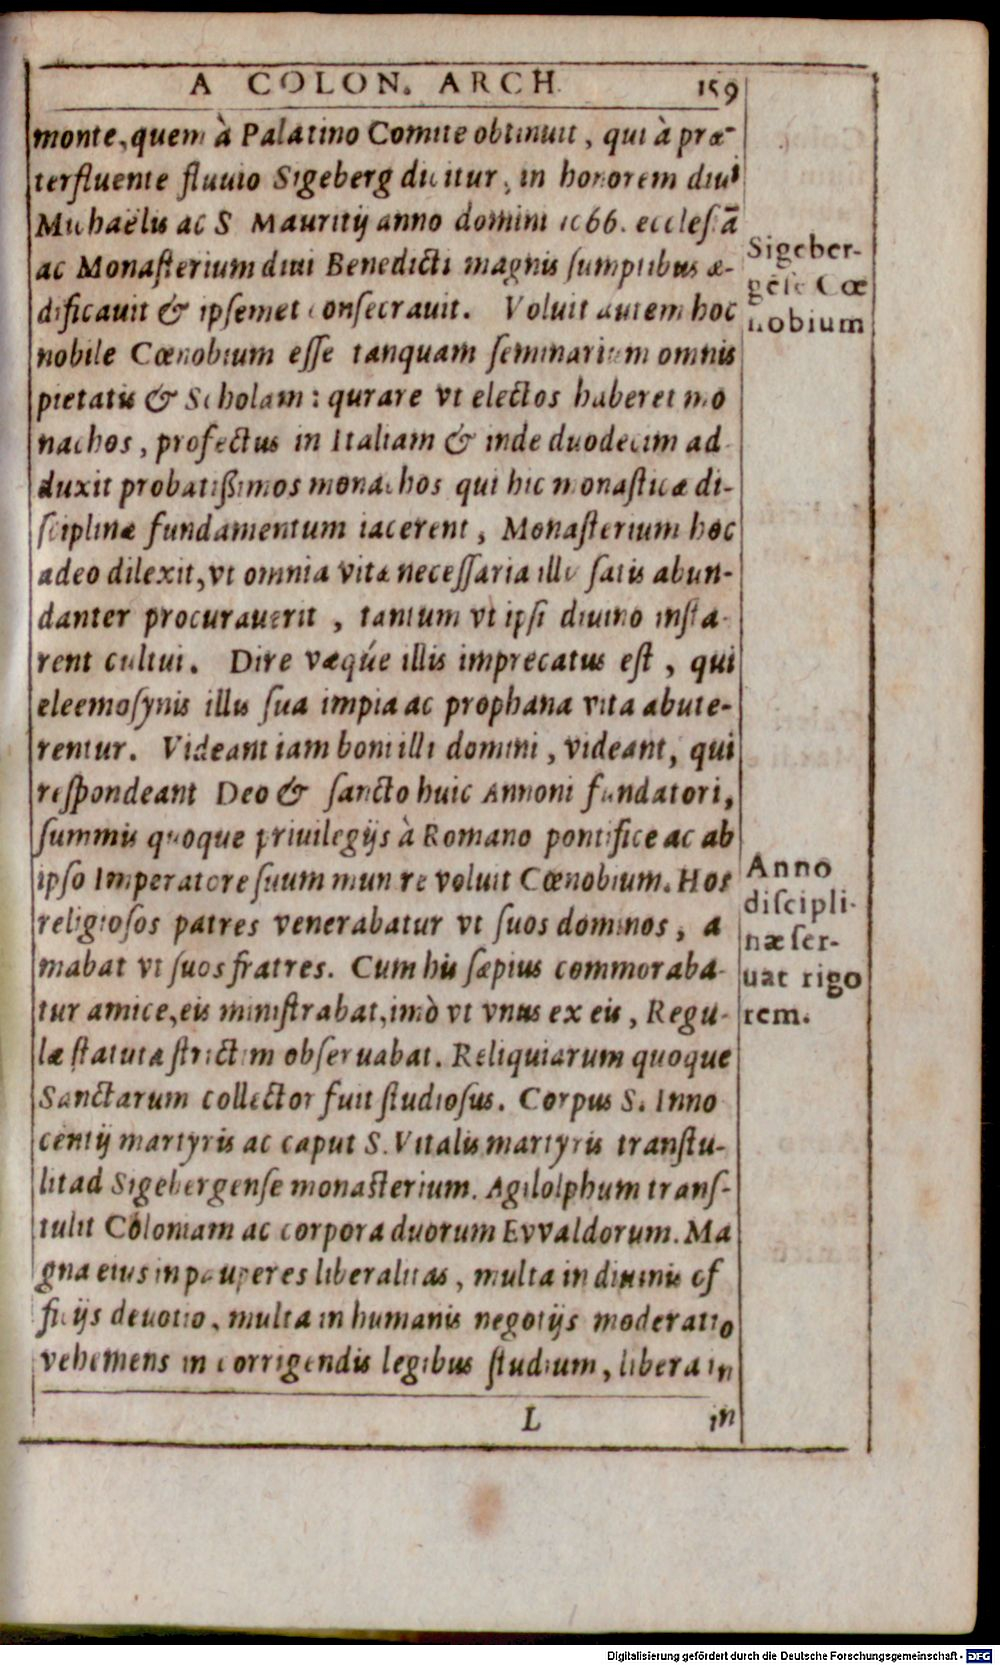 A COLON. ARCH. 159
monte, quem à Palatino Comite obtinuit, qui à præ-
terfluente fluuio Sigeberg dicitur, in honorem diui
Michaëlis ac S Mauritij anno domini 1066. ecclesiā
ac Monasterium diui Benedicti magnis sumptibus æ-
dificauit & ipsemet consecrauit. Voluit autem hoc
nobile Cœnobium esse tanquam seminarium omnis
pietatis & Scholam: qurare vt electos haberet mo
nachos, profectus in Italiam & inde duodecim ad
duxit probatißimos monachos qui hic monasticæ di-
sciplinæ fundamentum iacerent, Monasterium hoc
adeo dilexit, vt omnia vitæ necessaria illic satis abun-
danter procurauerit, tantum vt ipsi diuino insta-
rent cultui. Dire væqúe illis imprecatus est, qui
eleemosynis illis sua impia ac prophana vita abute-
rentur. Videant iam boni illi domini, videant, qui
respondeant Deo & sancto huic Annoni fundatori,
summis quoque priuilegijs à Romano pontifice ac ab
ipso Imperatore suum munire voluit Cœnobium. Hos
religiosos patres venerabatur vt suos dominos, a
mabat vt suos fratres. Cum his sæpius commoraba-
tur amice, eis ministrabat, imò vt vnus ex eis, Regu-
læ statuta strictim obseruabat. Reliquiarum quoque
Sanctarum collector fuit studiosus. Corpus S. Inno
centij martyris ac caput S. Vitalis martyris transtu-
lit ad Sigebergense monasterium. Agilolphum trans-
tulit Coloniam ac corpora duorum Evvaldorum. Ma
gna eius in pauperes liberalitas, multa in diuinis of
ficijs deuotio, multa in humanis negotijs moderatio
vehemens in corrigendis legibus studium, libera in
L in
Sigeber-
gēse Cœ
nobium
Anno
discipli-
næ ser-
uat rigo
rem.
Digitalisierung gefördert durch die Deutsche Forschungsgemeinschaft - DFG